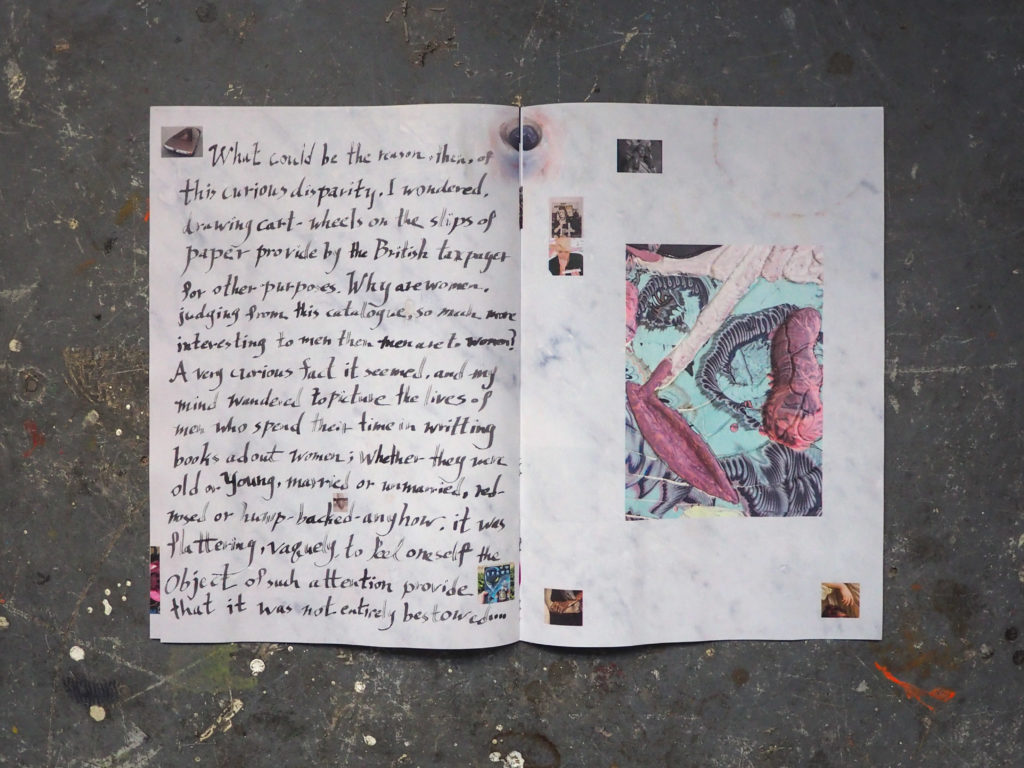 What could be the reason, then, of
this curious disparity, I wondered,
drawing cart-wheels on the slips of
paper provide by the British taxpayer
for other purposes. Why are women,
judging from this catalogue, so much more
interesting to men then men are to women?
A very curious fact it seemed, and my
mind wandered to picture the lives of
men who spend their time in writting
books adout women; whether they were
old or Young, married or unmarried, red-
nosed or hump-backed-anyhow, it was
flattering, vaguely to feel oneself the
Object of such attention provide
that it was not entirely bestowed...